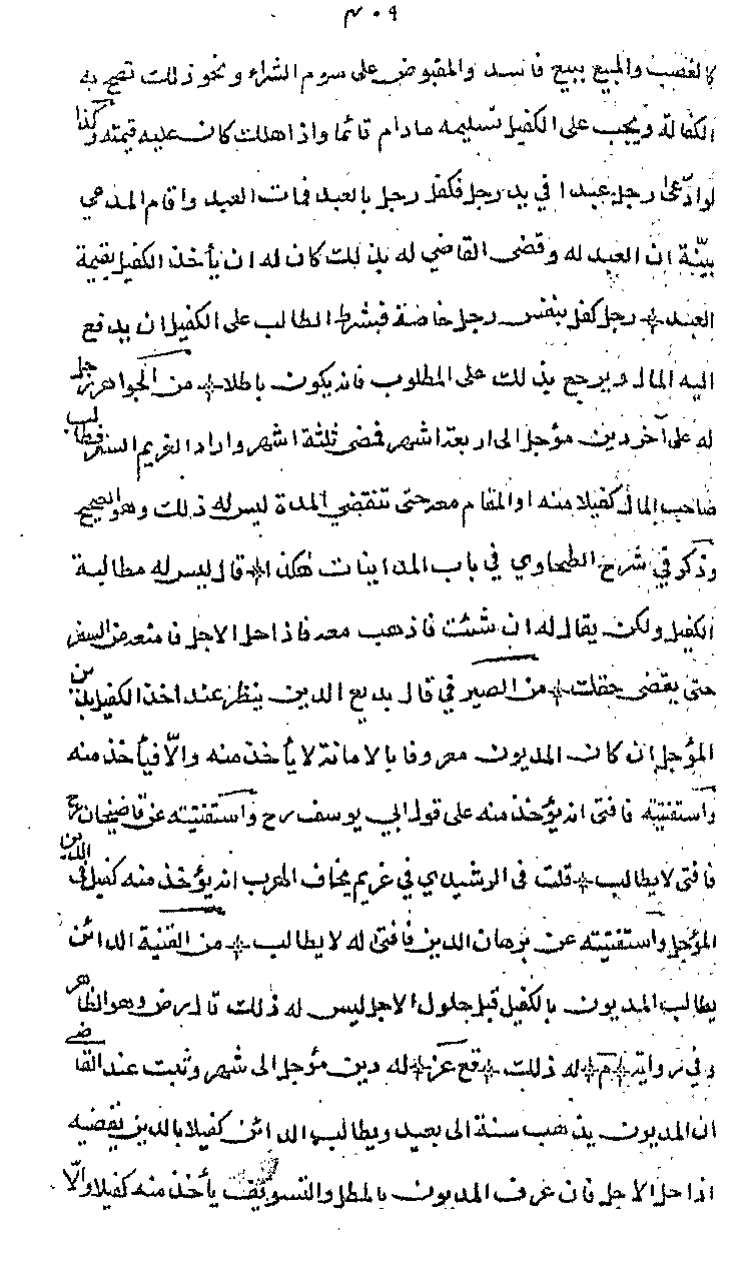 ٣٠٩
كالغصب والمبيع ببيع فاسد والمقبوض على سوم الشراء ونحو ذلك تصح به
الكفالة ويجب على الكفيل تسليمه مادام قائما واذا هلك كان عليه قيمته وكذا
لو ادّعى رجل عبدا في يد رجل فكفل رجل بالعبد فمات العبد واقام المدعي
بيّنة ان العبد له وقضى القاضي له بذلك كان له ان يأخذ الكفيل بقيمة
العبد رجل كفل بنفس رجل خاصة فبشرط الطالب على الكفيل ان يدفع
اليه المال ويرجع بذلك على المطلوب فانه يكون باطلا من الجواهر رجل
له على آخر دين مؤجل الى اربعة اشهر فمضى ثلثة اشهر واراد الغريم السفر فطالب
صاحب المال كفيلا منه او المقام معه حتى تنقضي المدة ليس له ذلك وهو الصحيح
وذكر في شرح الطحاوي في باب المداينات هكذا قال ليس له مطالبة
الكفيل ولكن يقال له ان شئت فاذهب معه فاذا حل الاجل فامنعه من السفر
حتى يقضى حقك من الصير في قال بديع الدين ينظر عند اخذ الكفيل بدين
المؤجل ان كان المديون معروفا بالامانة لا يأخذ منه والّا فيأخذ منه
واستفتيته فافتى انه يؤخذ منه على قول ابي يوسف رح واستفتيته عن قاضيخان رح
فافتى لا يطالب قلت في الرشيدي في غريم يخاف الهرب انه يؤخذ منه كفيل في الدين
المؤجل واستفتيته عن برهان الدين فافتى له لا يطالب من القنية الدائن
يطالب المديون بالكفيل قبل حلول الاجل ليس له ذلك قال رض وهو الظاهر
وفي رواية م له ذلك قع عز له دين مؤجل الى شهر وثبت عند القاضي
ان المديون يذهب سنة الى بعيد ويطالب الدائن كفيلا بالدين يقضيه
اذا حل الاجل فان عرف المديون بالمطل والتسويف يأخذ منه كفيلا والّا